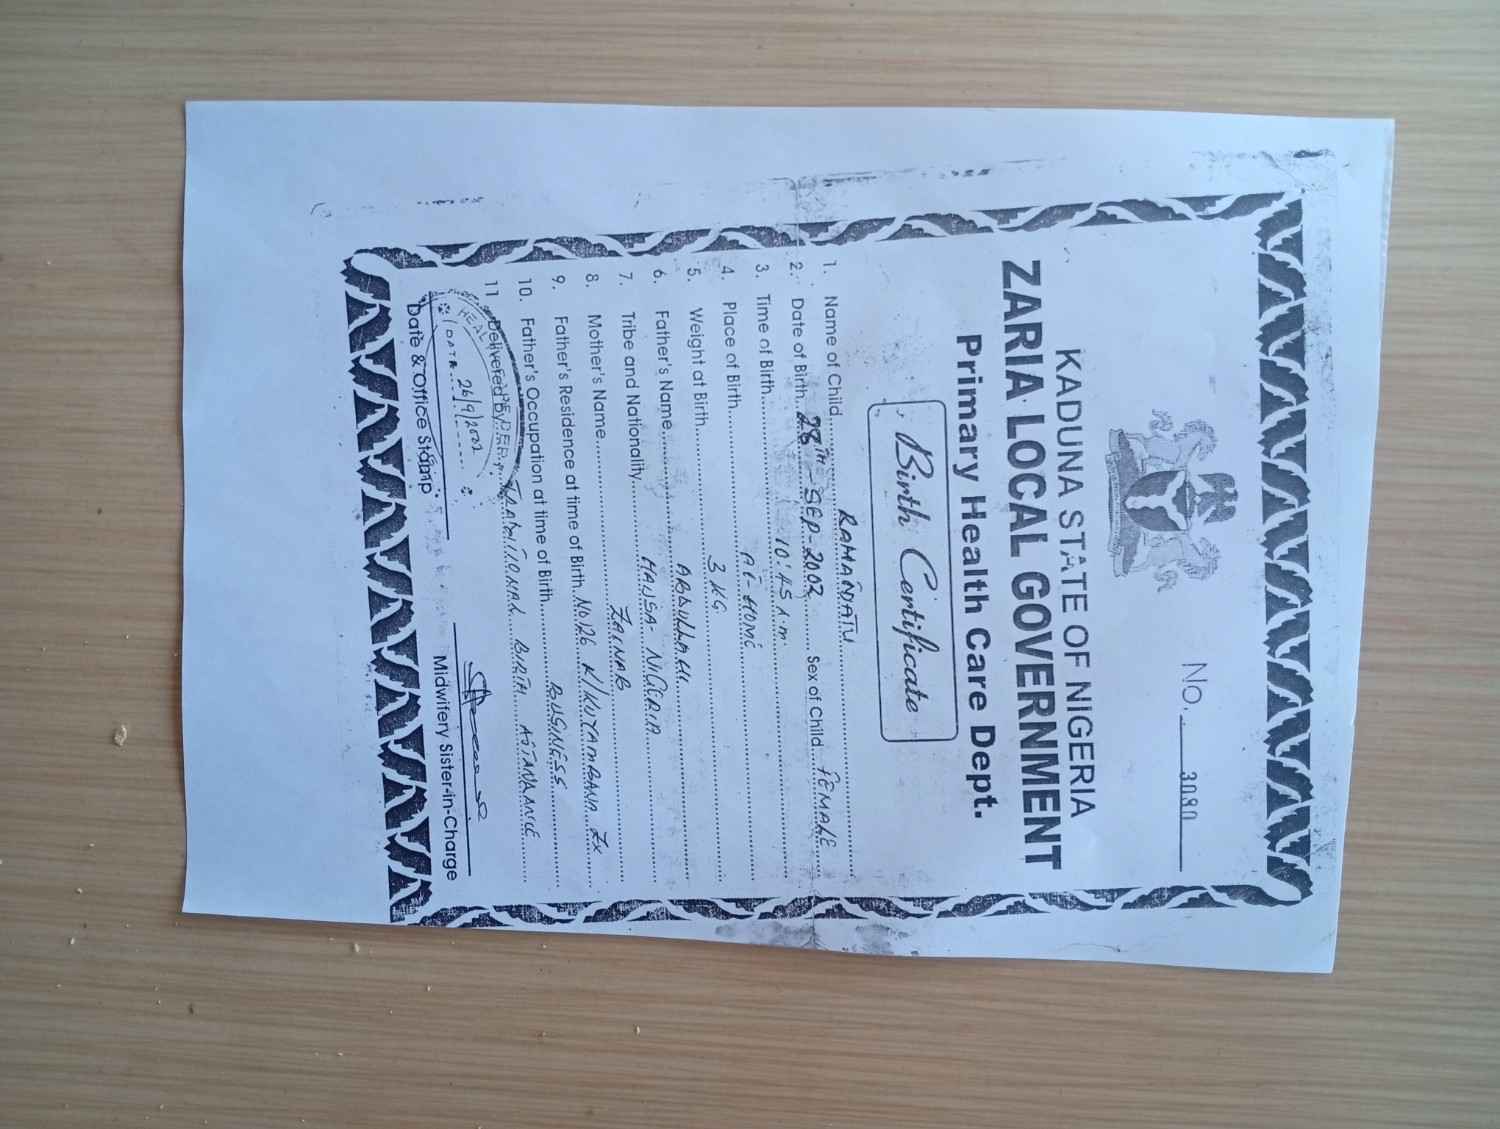 No. 3080
KADUNA STATE OF NIGERIA
ZARIA LOCAL GOVERNMENT
Primary Health Care Dept.
Birth Certificate
1. Name of Child RAMANDATU
2. Date of Birth 28TH - SEP - 2002 Sex of Child FEMALE
3. Time of Birth 10:45 A.m
4. Place of Birth AT-HOME
5. Weight at Birth 3KG
6. Father's Name ABDULLAHI
7. Tribe and Nationality HAUSA - NIGERIA
8. Mother's Name ZAINAB
9. Father's Residence at time of Birth NO.126 K/KUYAMBANA ZX
10. Father's Occupation at time of Birth BUSINESS
11 Delivered by TRADITIONAL BIRTH ATTANANCE
HEAL
DATE 26/9/2002
Date & Office Stamp
Midwifery Sister-in-Charge